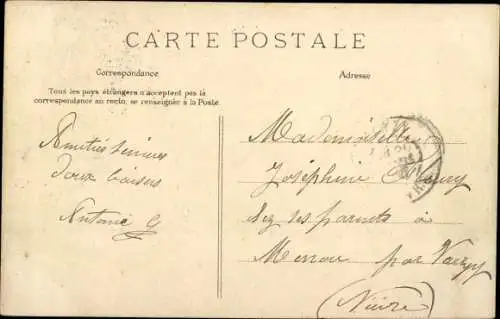 CARTE POSTALE
Correspondance
Adresse
Tous les pays étrangers n'acceptent pas la
correspondance au recto, se renseigner à la Poste
Amitiés sincères
doux baisers
Antonie G
Mademoiselle
Joséphine
chez ses parents à
Menou par Varzy
(Nièvre)